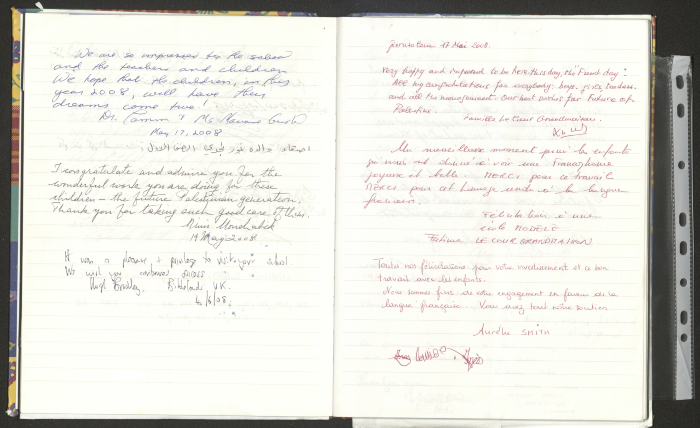 We are so impressed by the school
and the teachers and children
We hope that the children, in this
year 2008, will have their
dreams come true!
Dr. & Ms.
May 17, 2008
I congratulate and admire you for the
wonderful work you are doing for these
children – the future Palestinian generation.
Thank you for taking such good care of them.
19 May 2008
It was a pleasure & privilege to visit your school.
We wish you continued success
Hugh Bradley, UK.
4/6/08.
Jerusalem 17 Mai 2008.
Very happy and impressed to be here this day, the "French day".
All my congratulations for everybody: boys, girls, teachers
and all the management. Our best wishes for Future of
Palestine.
Famille Le Cour Grandmaison.
Un merveilleux moment parmi les enfants
qui nous ont donné à voir une Francophonie
joyeuse et belle. MERCI pour ce travail
MERCI pour cet hommage rendu à la langue
française.
Félicitations à une
école MODELE
Fatima LE COUR GRANDMAISON
Toutes nos félicitations pour votre investissement et ce bon
travail avec les enfants.
Nous sommes fiers de votre engagement en faveur de la
langue française. Vous avez tout notre soutien
Aurélie SMITH